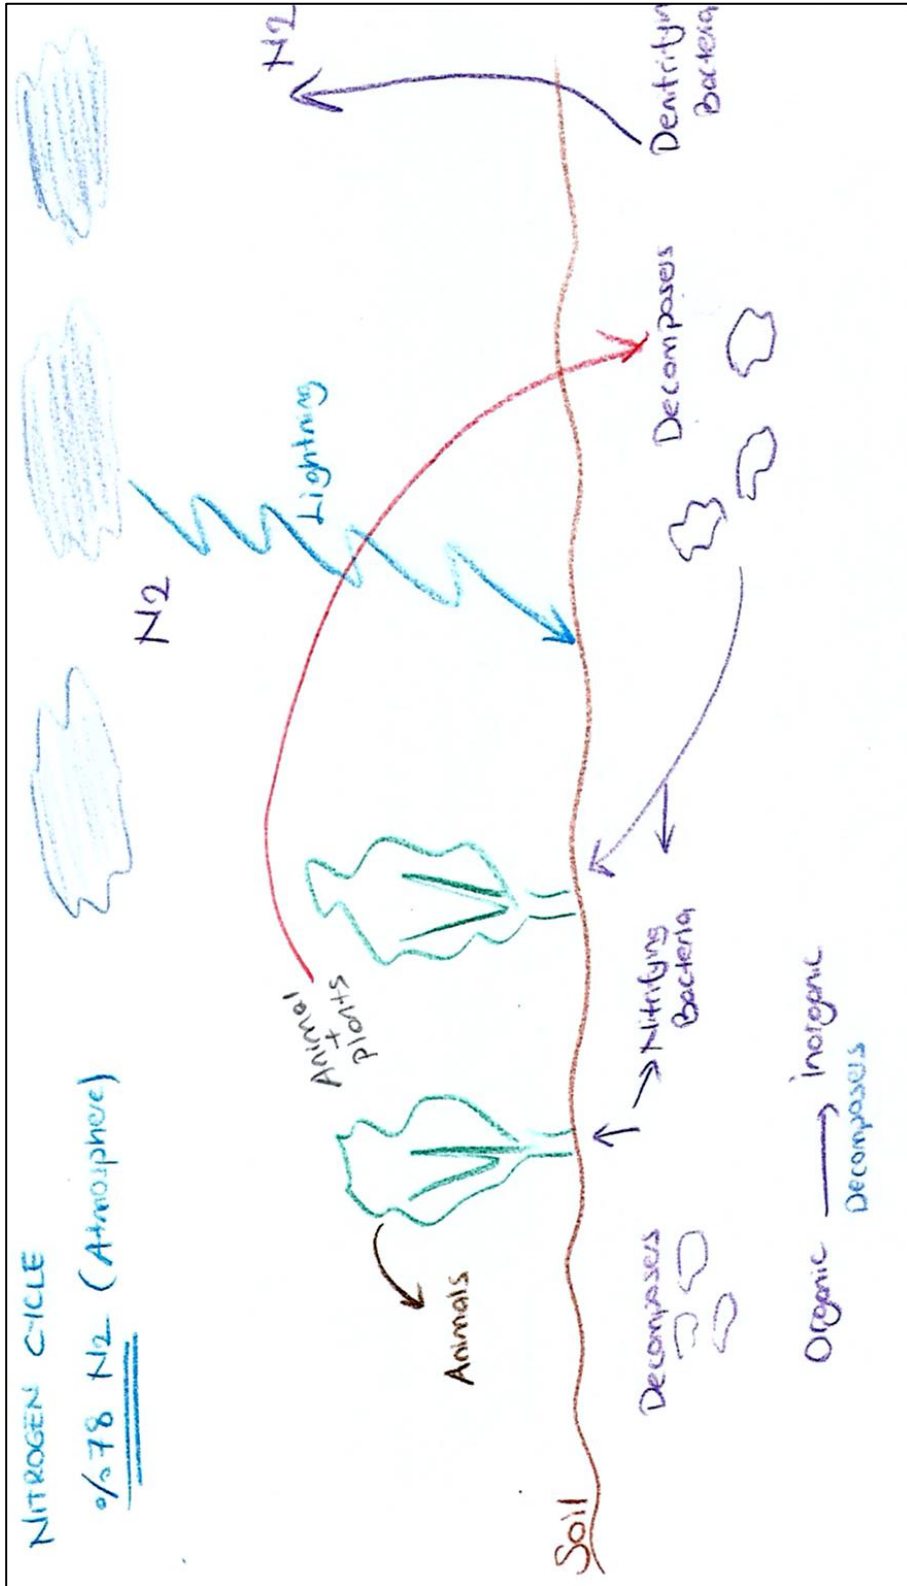 NITROGEN CYCLE
%78 N2 (Atmosphere)
N2
N2
Lightning
Animal
+
plants
Animals
Soil
Decomposers
Nitrifying
Bacteria
Decomposers
Denitrifyin
Bacteria
Organic → inorganic
Decomposers